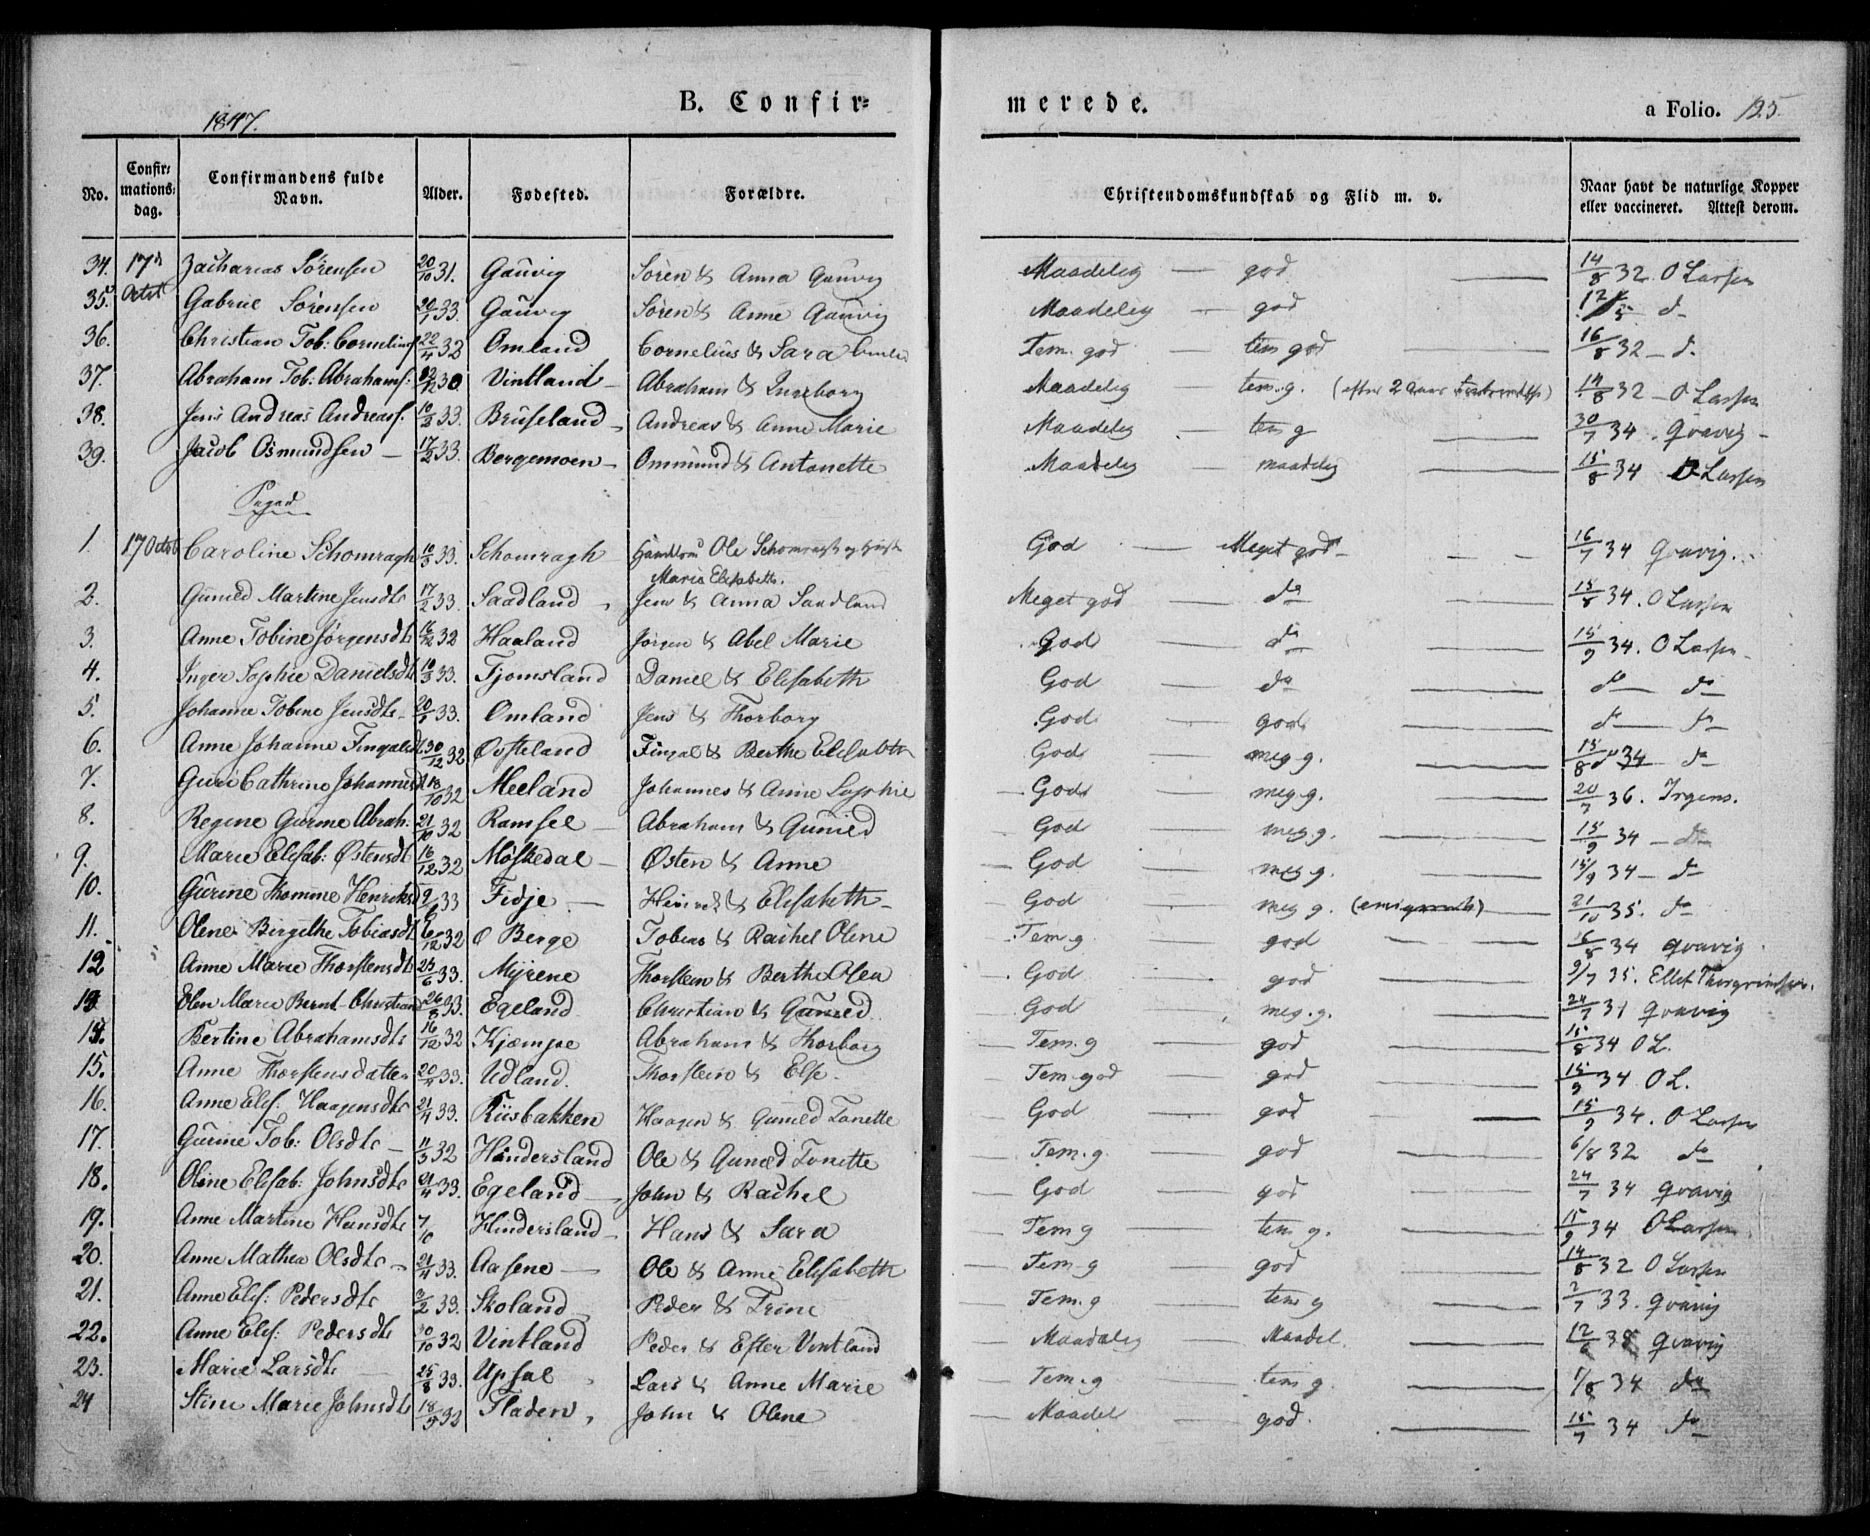 1847.
B. Confirmerede.
a Folio. 125.
No. Confirmationsdag. Confirmandens fulde Navn. Alder. Fødested. Forældre. Christendomskundskab og Flid m. v. Naar havt de naturlige Kopper eller vaccineret. Attest derom.
34. 17de Zacharias Sørensen 20/10 31. Gauvig Søren & Anna Gauvig Maadelig — god — 14/8 32. O Larsen
35. Octbr Gabriel Sørensen 30/1 33. Gauvig Søren & Anne Gauvig Maadelig — god do
36. Christian Tob: Cornelius 22/4 32 Omland Cornelius & Sara Tem. god — tem god — 16/8 32 — do
37. Abraham Tob: Abrahams: 30 Vintland — Abraham & Ingeborg Maadelig — tem. g. (efter 2 aars 14/8 32 — O Larsen
38. Jens Andreas Andreass. 10/2 33. Bruseland — Andreas & Anne Marie Maadelig — tem g — 30/7 34. Qvavig —
39. Jacob Osmundsen — 17/2 33. Bergemoen — Ommund & Antonette Maadelig — maadelig — 15/8 34 O Larsen
Piger
1. 17 Octbr Caroline Schomragh 10/3 33. Schomragh Ole Schomragh og Maria Elisabeth. God — Meget god — 16/7 34 Qvavig.
2. Guneld Martine Jensdtr 17/2 33. Saadland Jens & Anna Saadland Meget god — do — 15/8 34. O Larsen
3. Anne Tobine Jørgensdtr 16/12 32 Haaland Jørgen & Abel Marie God — do — 15/9 34. O Larsen
4. Inger Sophie Danielsdtr 10/3 33. Tjomsland Daniel & Elisabeth God — do — do — do
5. Johanne Tobine Jensdtr 20/1 33. Omland Jens & Thorborg God — god — do — do
6. Anne Johanne Fingalsdt 30/12 32 Øvsteland Fingal & Berthe Elisabeth God — meg g. — 15/8 34 — do
7. Guri Cathrine Johannesdt 18/10 32 Meeland Johannes & Anne Sophie God — meg. g. — 20/7 36. Irgens.
8. Regine Gurine Abrah: 21/10 32 Ramsel — Abraham & Guneld God — meg. g. — 15/9 34 — do
9. Marie Elisab: Østensdt 16/12 32 Møskedal — Østen & Anne God — meg g. — 15/9 34 — do
10. Gurine Thomine Henriksd 33 Fidje — Heinrik & Elisabeth — God — meg g. — 21/10 35. do
11. Olene Birgithe Tobiasdt 6/12 32 Ø Berge Tobias & Rachel Olene Tem. g — god — 16/8 34 Qvavig
12 Anne Marie Thorstensdt 25/6 33. Myrene Thorstein & Berthe Olea God — god — 9/7 35. Ellef Thorgrimsen.
13 Elen Marie Bernt. Christians 26/8 33. Egeland Christian & Guneld God — meg. g. — 24/7 31 Qvavig
14. Bertine Abrahamsdtr 16/12 32 Kjæmpe Abraham & Thorborg Tem. g — god — 15/8 34 O L.
15. Anne Thorstensdatter 20/4 33. Udland. Thorstein & Else Tem. god — god — 15/9 34 O L.
16. Anne Elis: Haagensdtr 21/4 33. Riisbakken Haagen & Guneld Tonette God — god — 15/9 34. O Larsen
17. Gurine Tob: Olsdtr — 11/3 32 Hindersland Ole & Guneld Tonette Tem. g. — god — 6/8 32 do
18. Oline Elisab: Johnsdtr 21/4 33. Egeland — John & Rachel God — god — 24/7 34 Qvavig
19. Anne Martine Hansdtr 7/10 Hindersland — Hans & Sara Tem g — tem g. — 15/9 34 O Larsen
20. Anne Mathea Olsdtr — 21/4 33. Aasene — Ole & Anne Elisabeth Tem. g — god — 14/8 32 O Larsen
21. Anne Elis: Pedersdtr 9/2 33. Skoland Peder & Trine Tem. g — tem g — 2/7 33. Qvavig
22. Anne Elis: Pedersdtr 30/10 32 Vintland Peder & Ester Vintland Maadelig — Maadel. — 12/6 38 Qvavig
23. Marie Larsdtr 25/8 33. Upsal Lars & Anne Marie Tem. g — tem g. — 1/8 34 do
24 Stine Marie Johnsdtr 18/5 32 Fladen John & Olene Maadel — god. — 15/7 34 do